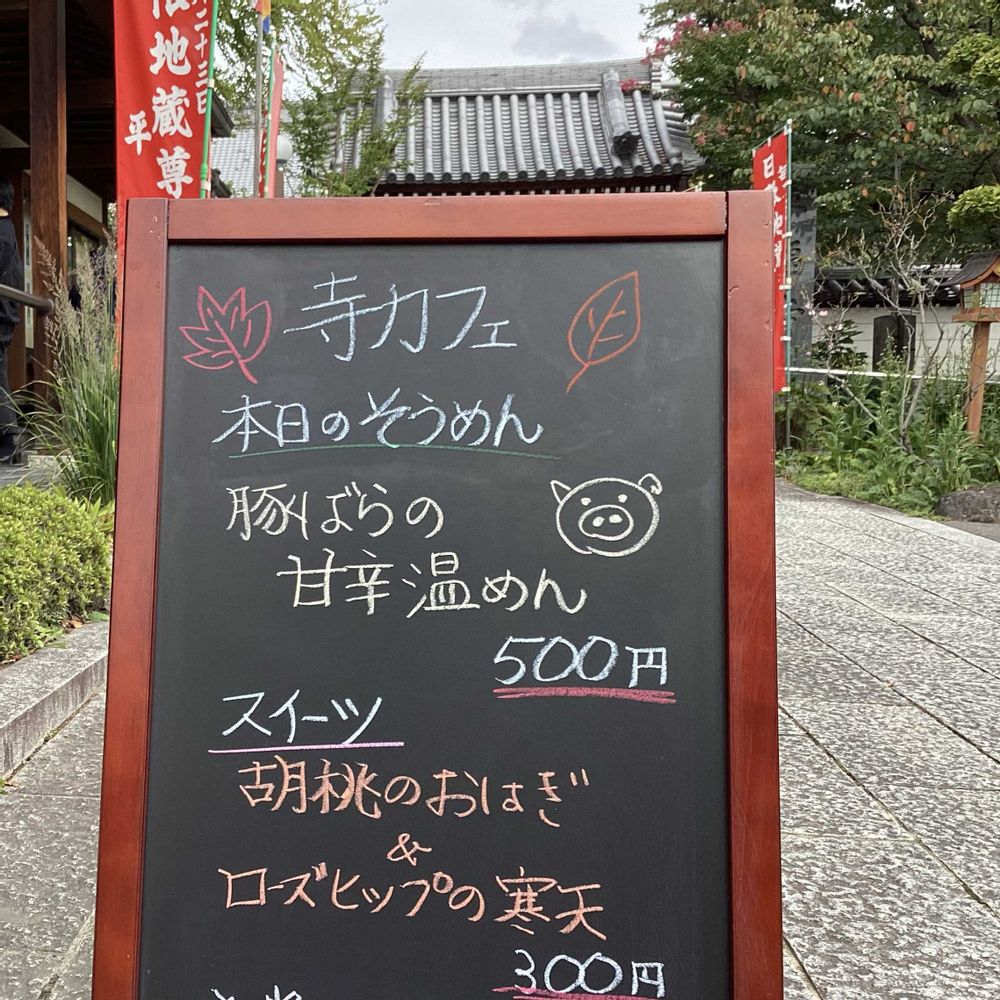 二十三日
地蔵尊
平
寺カフェ
本日のそうめん
豚ばらの
甘辛温めん
500円
スイーツ
胡桃のおはぎ
&
ローズヒップの寒天
300円